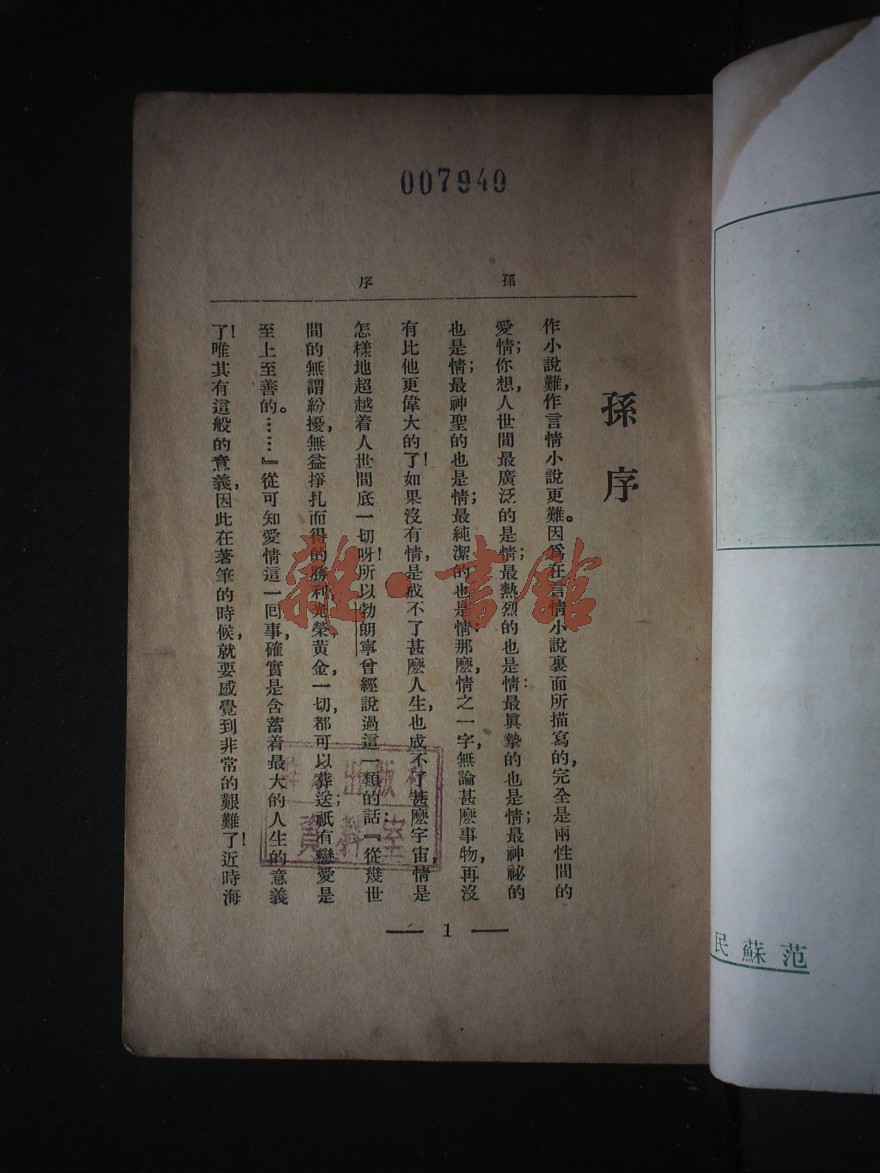 007940
孫序
孫序
作小說難，作言情小說更難。因爲在言情小說裏面所描寫的，完全是兩性間的
愛情；你想，人世間最廣泛的是情；最熱烈的也是情；最眞摯的也是情；最神祕的
也是情；最神聖的也是情；最純潔的也是情；那麽，情之一字，無論甚麽事物，再沒
有比他更偉大的了！如果沒有情，是成不了甚麽人生，也成不了甚麽宇宙，情是
怎樣地超越着人世間底一切呀！所以勃朗寧曾經說過這一類的話：『從幾世
間的無謂紛擾，無益掙扎而得的勝利，光榮，黃金，一切，都可以葬送；祇有戀愛是
至上至善的。……』從可知愛情這一回事，確實是含蓄着最大的人生的意義
了！唯其有這般的意義，因此在著筆的時候，就要感覺到非常的艱難了！近時海
1
雜·書館
出版
資料室
范蘇民